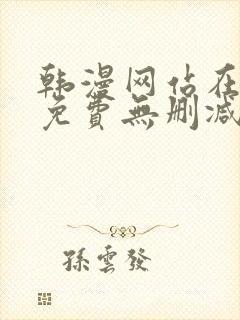 韩漫网站在
免費無删减
孫雲發